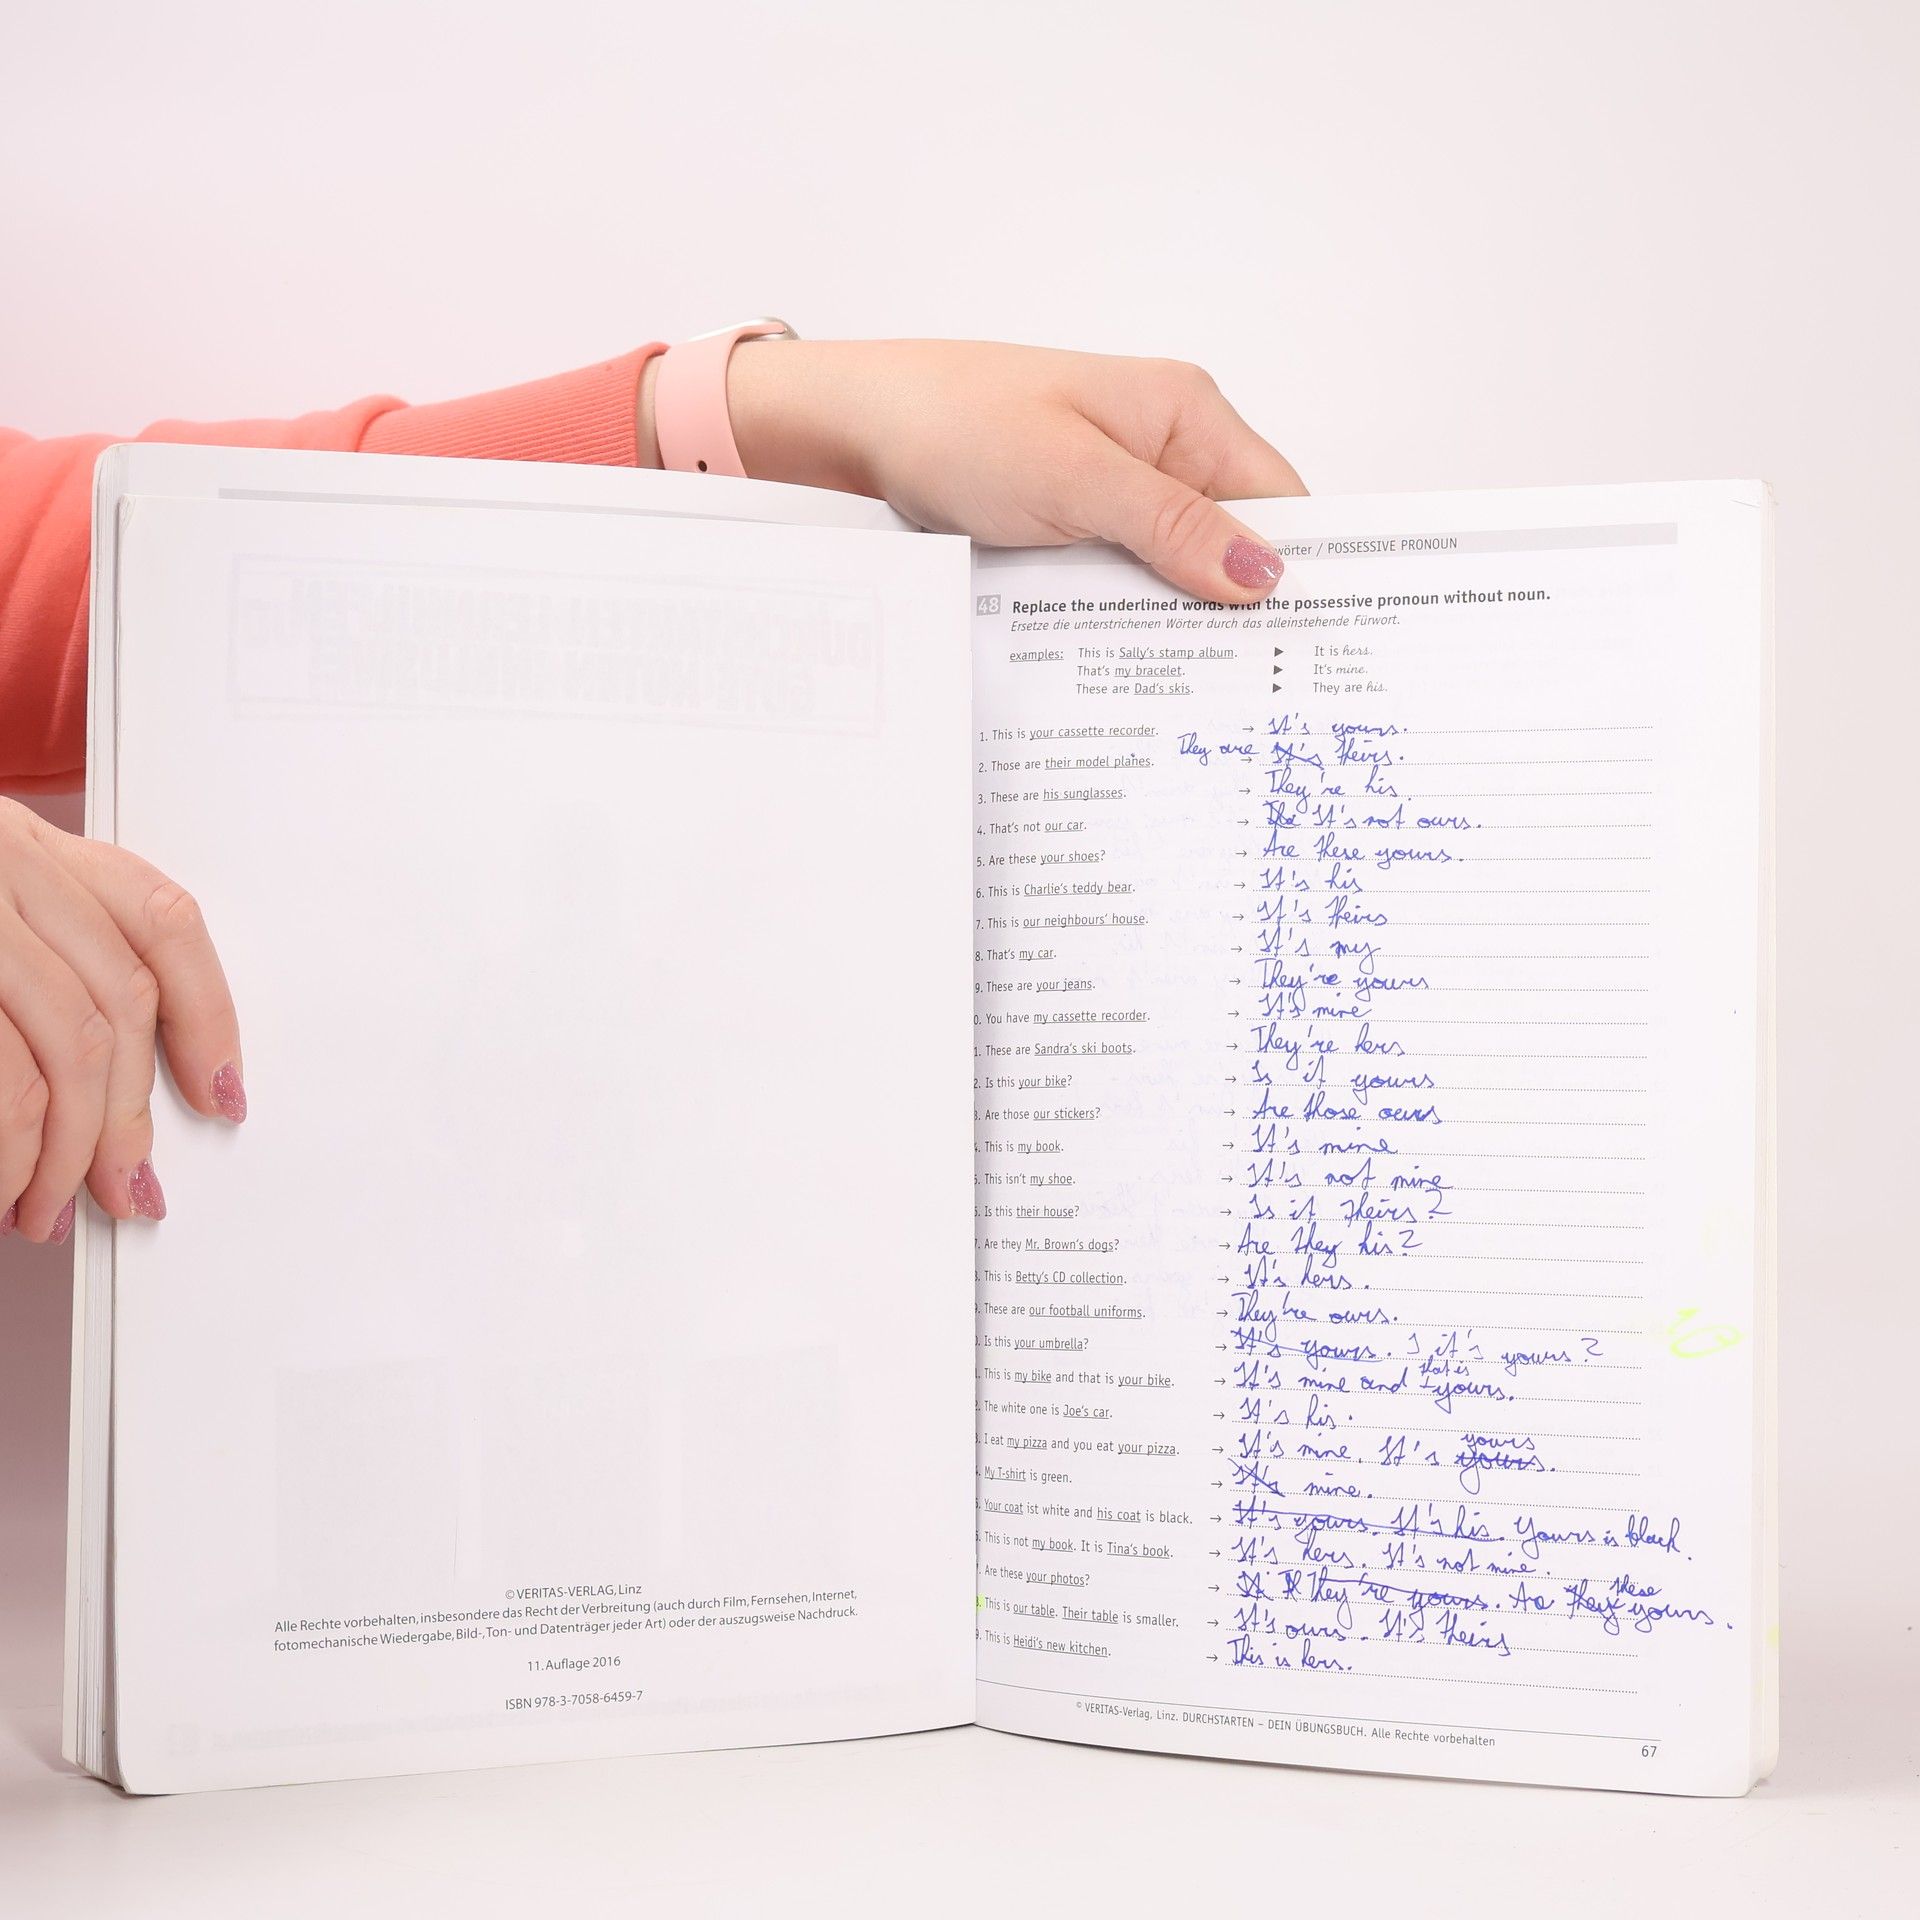 © VERITAS-VERLAG, Linz
Alle Rechte vorbehalten, insbesondere das Recht der Verbreitung (auch durch Film, Fernsehen, Internet,
fotomechanische Wiedergabe, Bild-, Ton- und Datenträger jeder Art) oder der auszugsweise Nachdruck.
11. Auflage 2016
ISBN 978-3-7058-6459-7
wörter / POSSESSIVE PRONOUN
48 Replace the underlined words with the possessive pronoun without noun.
Ersetze die unterstrichenen Wörter durch das alleinstehende Fürwort.
examples: This is Sally's stamp album. ▶ It is hers.
That's my bracelet. ▶ It's mine.
These are Dad's skis. ▶ They are his.
1. This is your cassette recorder. → It's yours.
2. Those are their model planes. They are → It's theirs.
3. These are his sunglasses. → They're his.
4. That's not our car. → It's not ours.
5. Are these your shoes? → Are these yours.
6. This is Charlie's teddy bear. → It's his
7. This is our neighbours' house. → It's theirs
8. That's my car. → It's my
9. These are your jeans. → They're yours
0. You have my cassette recorder. → It's mine
1. These are Sandra's ski boots. → They're hers
2. Is this your bike? → Is it yours
3. Are those our stickers? → Are those ours
4. This is my book. → It's mine
5. This isn't my shoe. → It's not mine
6. Is this their house? → Is it theirs?
7. Are they Mr. Brown's dogs? → Are they his?
8. This is Betty's CD collection. → It's hers.
9. These are our football uniforms. → They're ours.
0. Is this your umbrella? → It's yours. it's yours?
1. This is my bike and that is your bike. → It's mine and that is yours.
2. The white one is Joe's car. → It's his.
3. I eat my pizza and you eat your pizza. → It's mine. It's yours yours.
4. My T-shirt is green. → It's mine.
5. Your coat ist white and his coat is black. → It's yours. It's his. Yours is black.
6. This is not my book. It is Tina's book. → It's hers. It's not mine.
7. Are these your photos? → They're yours. Are they these yours.
8. This is our table. Their table is smaller. → It's ours. It's theirs
9. This is Heidi's new kitchen. → This is hers.
© VERITAS-Verlag, Linz. DURCHSTARTEN – DEIN ÜBUNGSBUCH. Alle Rechte vorbehalten
67